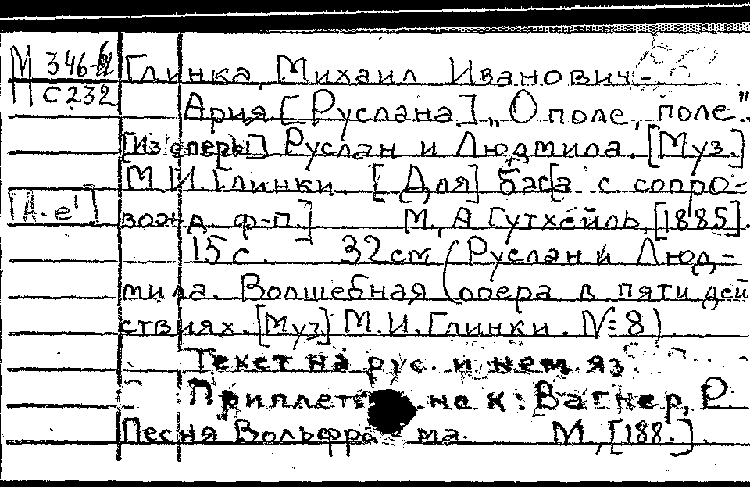 М 346-
С 232
Глинка, Михаил Иванович.
Ария [Руслана] „О поле, поле".
[Из оперы] Руслан и Людмила. [Муз.]
М.И. Глинки. [Для] баса с сопро-
[А.е']
вожд. ф-п.] М., А. Гутхейль, [1885].
15 с. 32 см (Руслан и Люд-
мила. Волшебная опера в пяти дей
ствиях. [Муз] М.И. Глинки. №8)
Текст на рус. и нем яз.
на к: Вагнер, Р.
Песня ма. М., [188.]